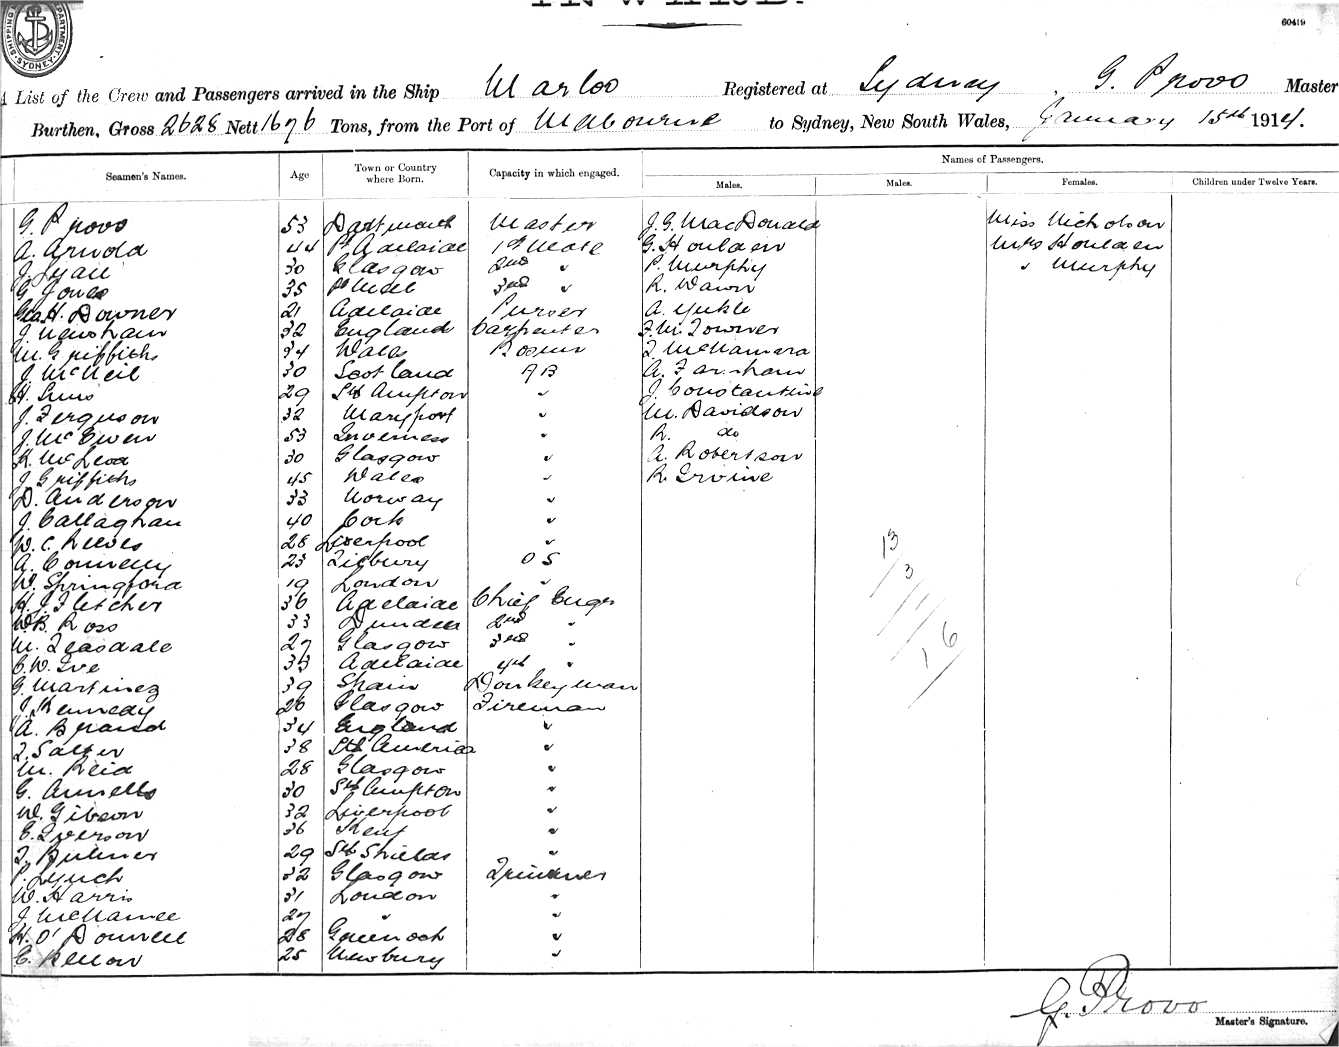 INWARD.
60419
SHIPPING DEPARTMENT SYDNEY
List of the Crew and Passengers arrived in the Ship Warloo Registered at Sydney, G. Provo Master
Burthen, Gross 2628 Nett 1676 Tons, from the Port of Melbourne to Sydney, New South Wales, January 15th 1914.
Seamen's Names. Age Town or Country where Born. Capacity in which engaged. Names of Passengers.
Males. Males. Females. Children under Twelve Years.
G. Provo 53 Dartmouth Master J. G. MacDonald Miss Nicholson
A. Arnold 44 Pt Adelaide 1st Mate G. Houlden Mrs Houlden
J. Lyall 30 Glasgow 2nd " P. Murphy " Murphy
G. Jones 35 3rd " R. Wawn
Geo. H. Downer 21 Adelaide Purser A. Yukle
J. Henshaw 32 England Carpenter F. W. Towner
W. Griffiths 34 Wales Bosun T. McNamara
J. McNeil 30 Scotland AB A. Farnham
H. Sims 29 Sth Ampton " J. Constantine
J. Ferguson 32 Maryport " W. Davidson
J. McEwen 53 Inverness " R. do
K. McLeod 30 Glasgow " A. Robertson
J. Griffiths 45 Wales " R. Irvine
D. Anderson 33 Norway "
J. Callaghan 40 Cork "
W. C. Reeves 28 Liverpool " 13
A. Connelly 23 Tilbury O S 3
W. Springford 19 London "
H. J. Fletcher 36 Adelaide Chief Engr
W. B. Ross 33 Dundee 2nd "
M. Teasdale 27 Glasgow 3rd " 16
C. W. Ive 33 Adelaide 4th "
G. Martinez 39 Spain Donkeyman
J. Kennedy 26 Glasgow Fireman
A. Brand 34 England "
T. Salter 38 Sth America "
W. Reid 28 Glasgow "
G. Annells 30 Sth Ampton "
W. Gibson 32 Liverpool "
C. Iverson 36 Kent "
T. Bulmer 29 Sth Shields "
P. Lynch 32 Glasgow Trimmer
W. Harris 31 London "
J. McNamee 27 " "
H. O'Donnell 28 Greenock "
C. Kellow 25 Newbury "
G. Provo
Master's Signature.